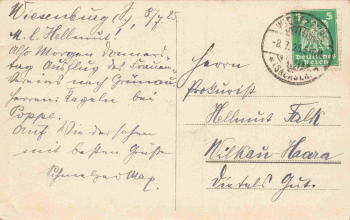 Wiesenburg 8/7. 25
M. l. Hellmut!
Also Morgen Donners-
tag Ausflug des Frauen-
Vereins nach Grünau
Herren: Kegeln bei
Poppl.
Auf Wiedersehen
mit besten Grüße
Max.
Herrn
Prokurist
Hellmut Falk
Wilkau-Haara
Dietels Gut.
5
Deutsches
Reich
-8.7.25